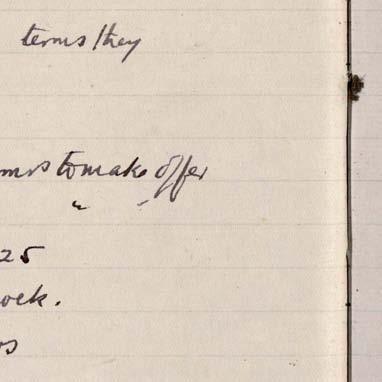 terms they
to make offer
"  "
25
ock.